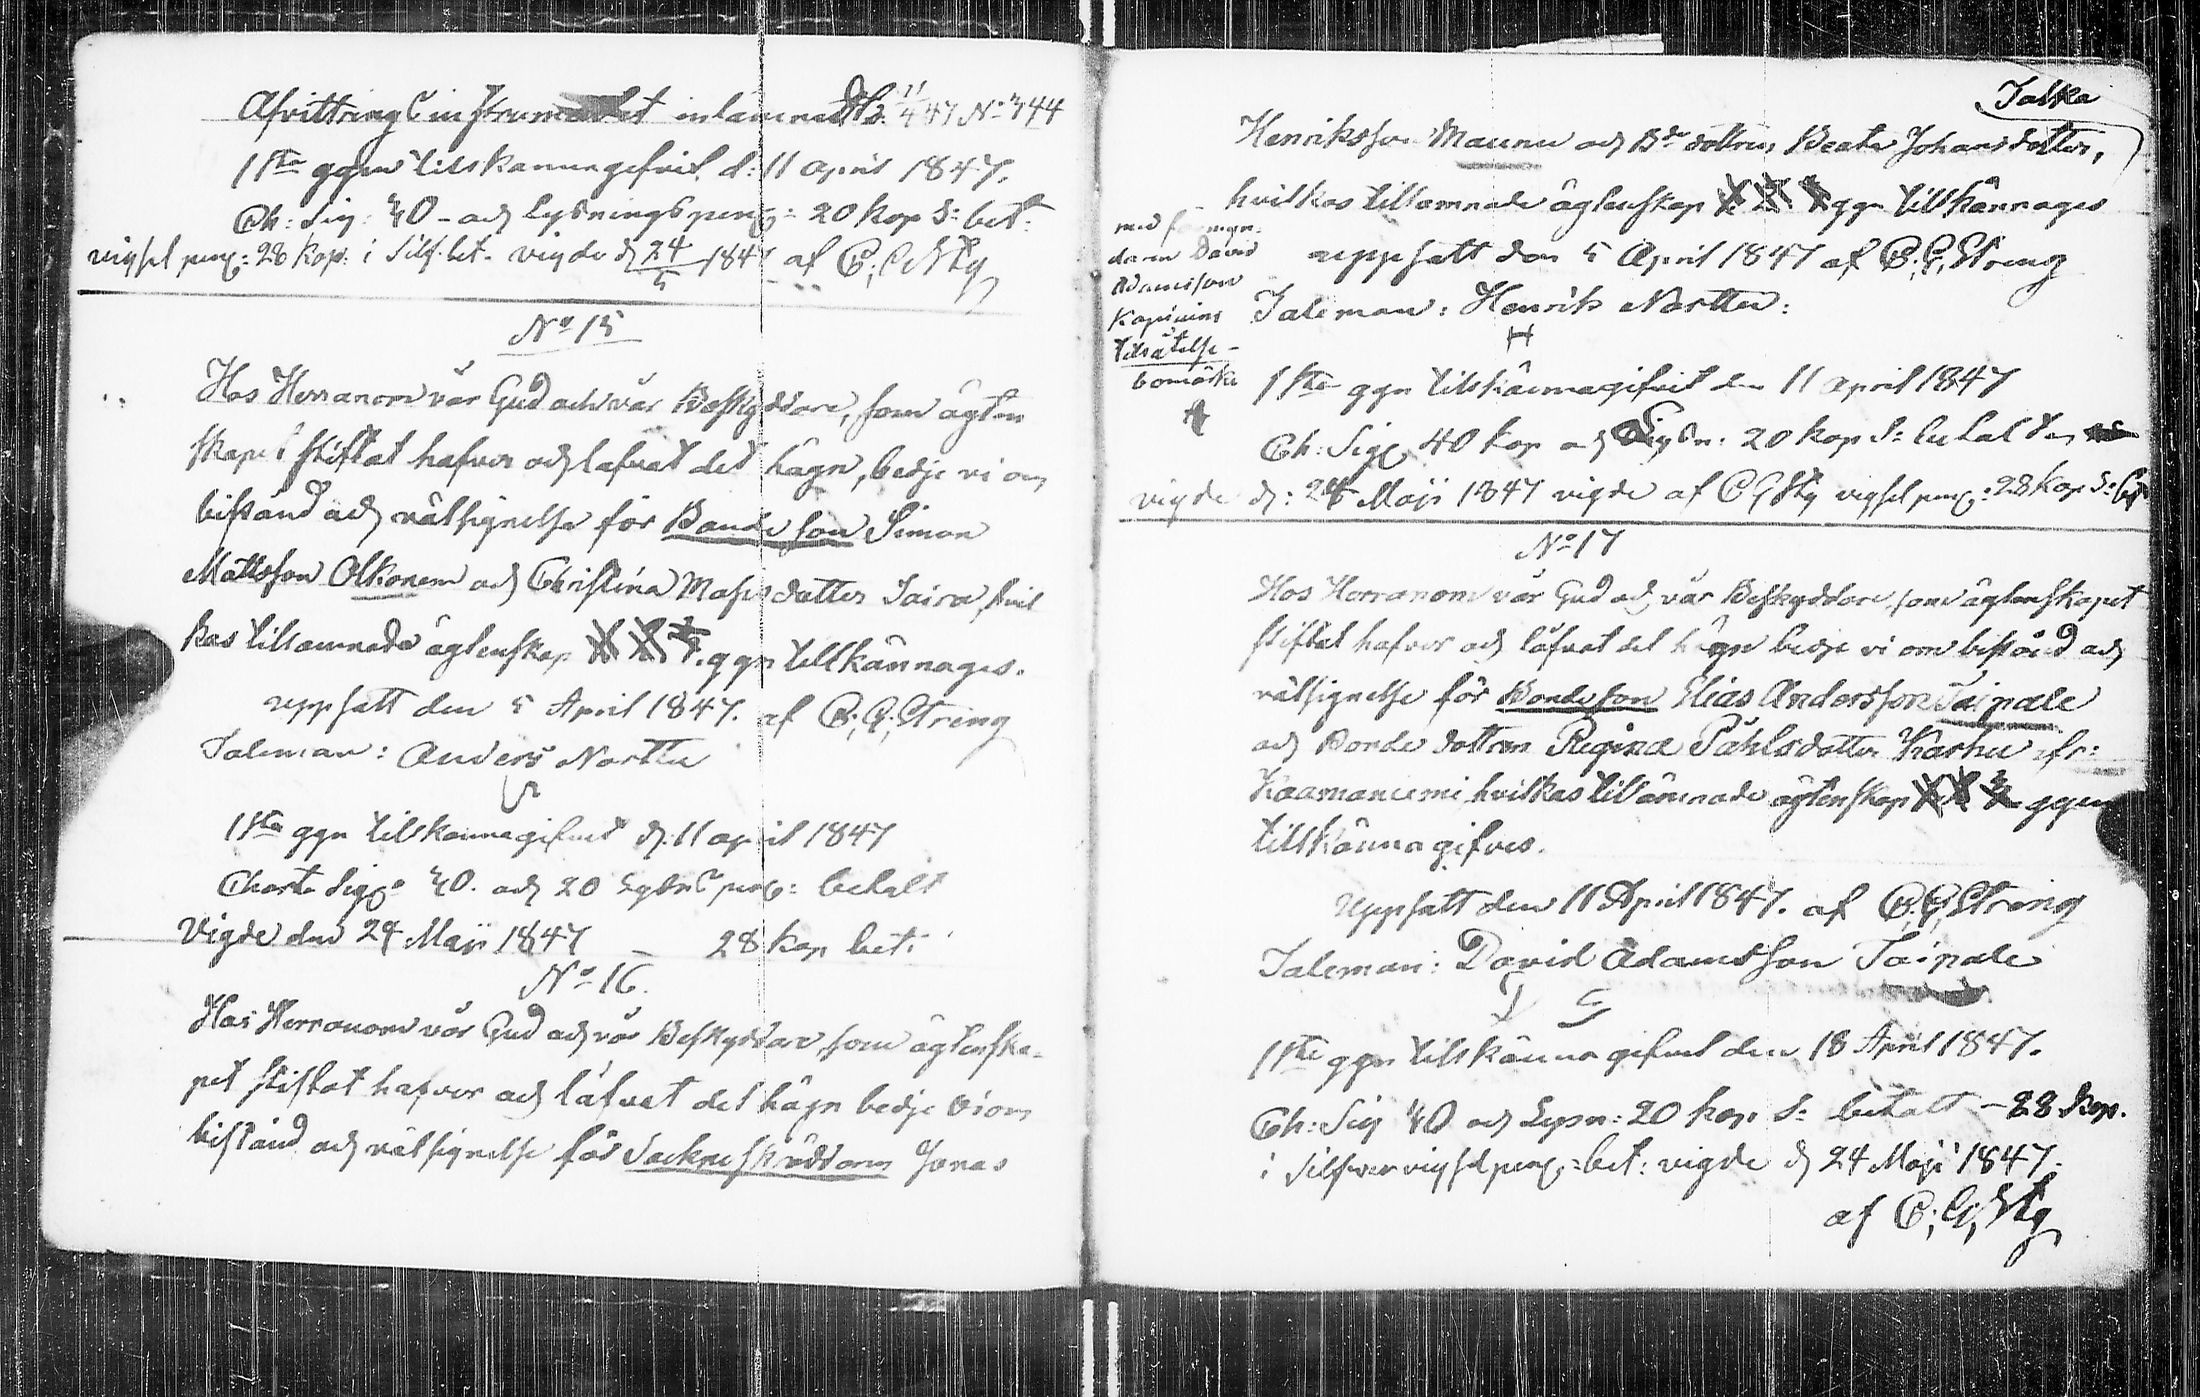 Afvittrings instrumentet inlämnadt d. 11/4 47 No 344
1sta ggn tillskännagifvit d: 11 April 1847.
Ch: Sig: 40 - och Lysningspeng: 20 kop S: bet:
vigsel peng: 28 kop: i Silf. bet. vigde d 24/5 1847 af C; G Stg
No 15
Hos Herranom vår Gud och vår Beskyddare, som ägten
skapet stiftat hafver och lofvat det hägn, bedje vi om
bistånd och välsignelse för Bonde son Simon
Mattsson Olkonem och Christina Matsdotter Taira, hvil
kas tillämnade ägtenskap 1. 2. 3. ggn tillkännages.
uppsatt den 5 April 1847. af C; G; Streng
Taleman: Anders Nortta
1sta ggn tillskännagifvet d. 11 april 1847
Charta Sig: 40. och 20 Lysn: peng: betalt
Vigde den 24 Maji 1847 – 28 kop bet:
No 16.
Hos Herranom vår Gud och vår Beskyddare, som ägtenska-
pet stiftat hafver och låfvat det hägn bedje vi om
bistånd och välsignelse för Sockneskräddaren Jonas
Talka
Henriksson Maunu och Bde dottren Beata Johansdotter,
hvilkas tillämnade ägtenskap 1 2 3 ggn tillkännages
uppsatt den 5 April 1847 af C; G; Streng
med förmyn-
daren David
Adamsson
tillåtelse-
bomärke
Taleman: Henrik Nortta:
H
1sta ggn tillskännagifvit den 11 april 1847
Ch: Sig 40 kop och Lysn: 20 kop S: betalt den
vigde d: 24 Maji 1847 vigde af C G Stg vigsel peng: 28 kop S: bet
No 17
Hos Herranom vår Gud och vår Beskyddare, som ägtenskapet
stiftat hafver och låfvat det hägn bedje vi om bistånd och
välsignelse för Bondeson Elias Andersson Taipale
och Bonde dottren Regina Påhlsdotter Karhu ifr:
Kaamaniemi hvilkas tillämnade ägtenskap 1 2 3 ggen
tillkännagifves.
Uppsatt den 11 April 1847. af C. G; Streng
Taleman: David Adamsson Taipale
1sta ggn tillskännagifvet den 18 April 1847.
Ch: Sig 40 och Lysn: 20 kop S: betalt – 28 kop.
i Silfver vigsel peng: bet: vigde d 24 Maji 1847.
af C; G; Stg